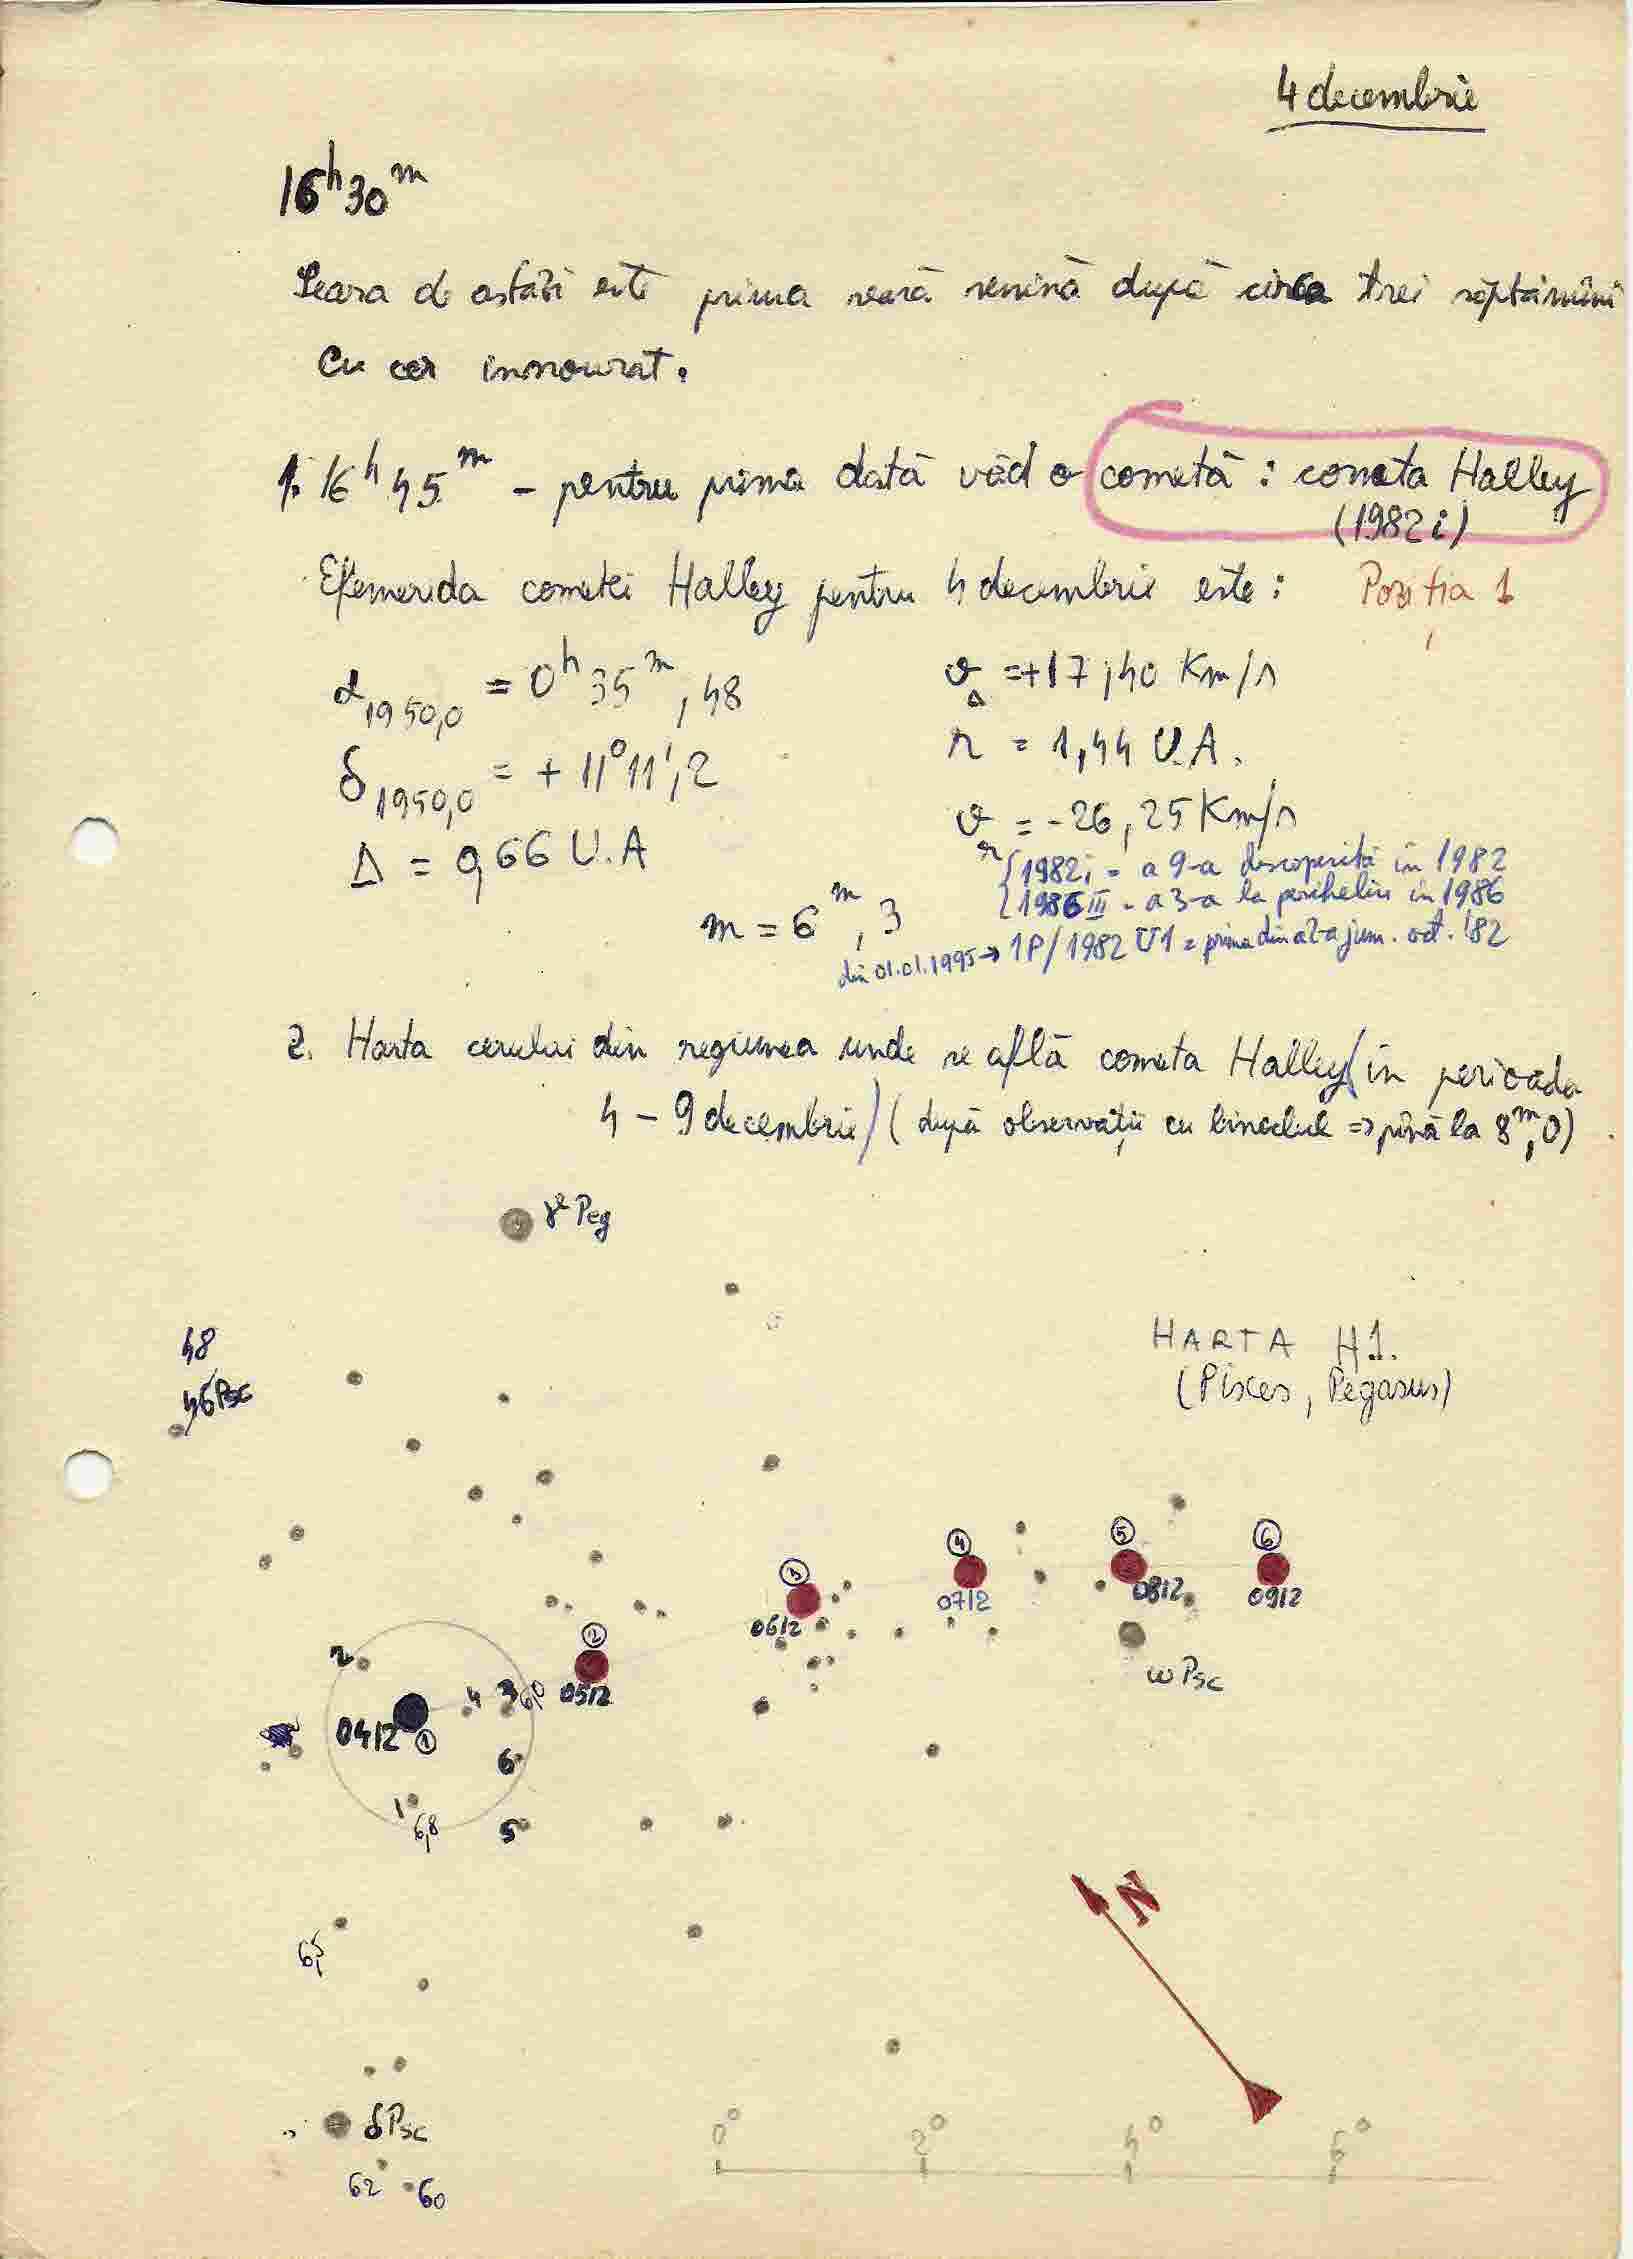 4 decembrie
16h30m
Seara de astăzi este prima seară senină după circa trei săptămîni
Cu cer innourat.
1. 16h45m - pentru prima dată văd o cometă : cometa Halley
(1982 i)
Efemerida cometei Halley pentru 4 decembrie este : Poziția 1
α1950,0 = 0h35m,48
vΔ = +17,40 Km/s
δ1950,0 = + 11°11',2
r = 1,44 U.A.
Δ = 0,66 U.A
vr = -26,25 Km/s
m = 6m,3
{1982i = a 9-a descoperită în 1982
{1986 III = a 3-a la periheliu în 1986
din 01.01.1995 → 1P/1982 U1 = prima din a 2-a jum. oct. '82
2. Harta cerului din regiunea unde se află cometa Halley (în perioada
4 - 9 decembrie) (după observații cu binoclul => pînă la 8m,0)
γ Peg
HARTA H1.
(Pisces, Pegasus)
48
46 Psc
④ ⑤ ⑥
③
0712 0812 0912
0612
②
2
4 3 6,0 0512
ω Psc
0412 ①
6
1
6,8 5
N
6,5
δ Psc
0° 2° 4° 6°
62 60